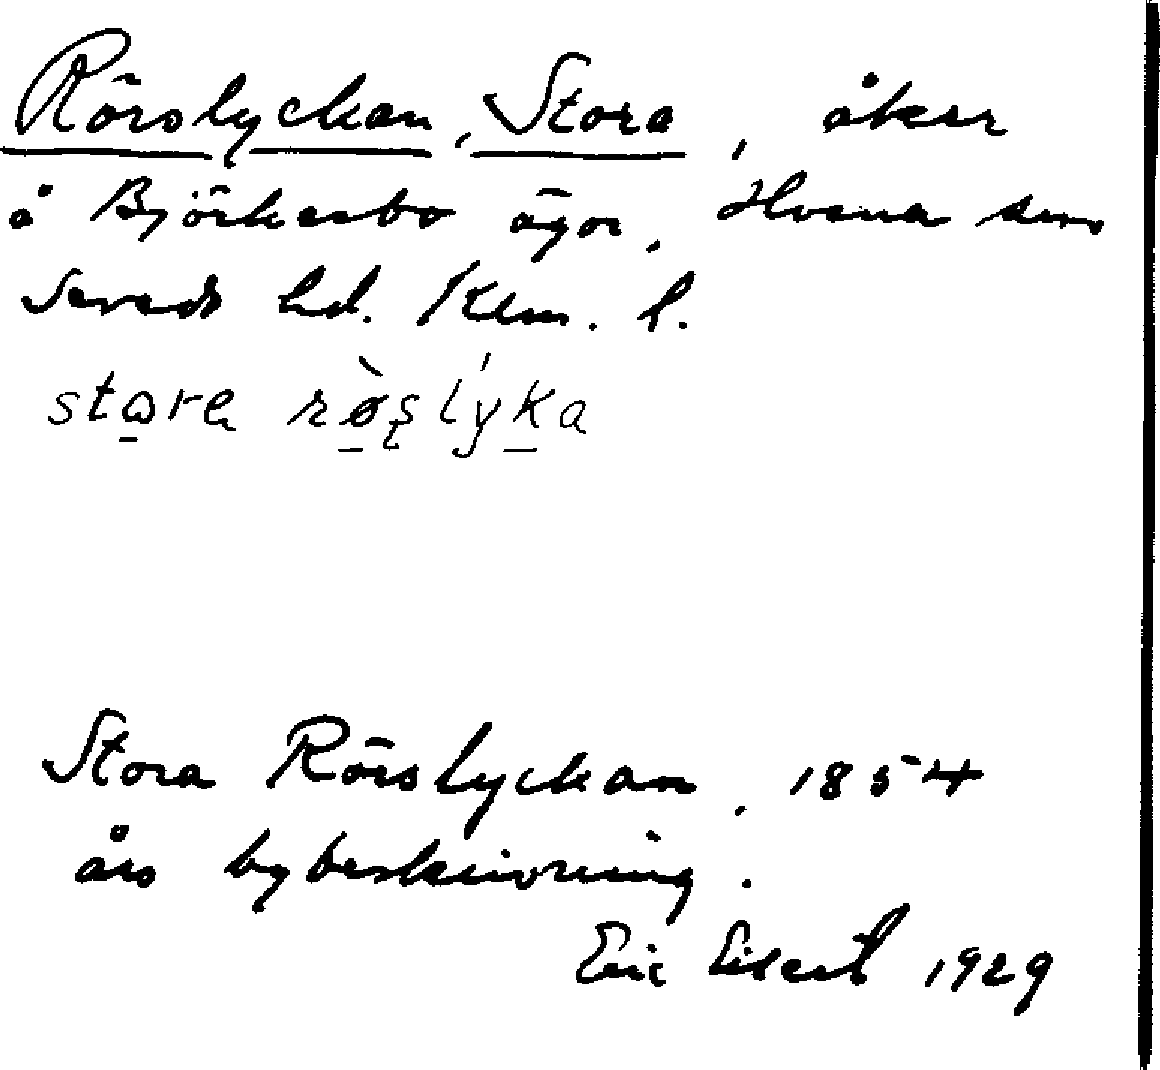 Rörslyckan, Stora, åker
å Björkesbo ägor, Hvena sn
Sevede hd. Klm. l.
Stora Rörslyckan, 1854
års bybeskrivning.
Eric Elgert 1929